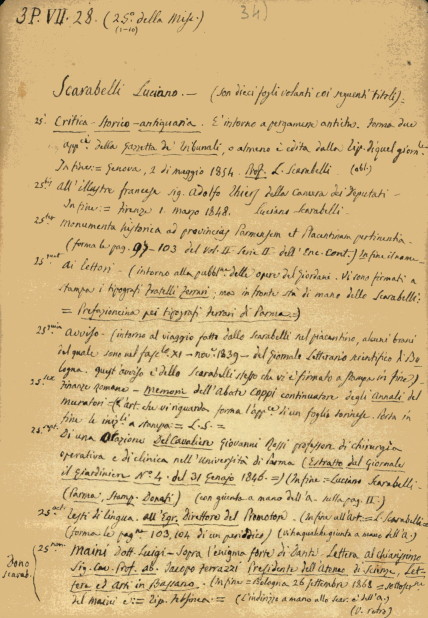 3P. VII. 28. (25°. della Misc.) 34)
(1-10)
Scarabelli Luciano. — (son dieci fogli volanti coi seguenti titoli)=
25¹ Critica-Storico-antiquaria. È intorno a pergamene antiche. Forma due
app.ci della Gazzetta de' tribunali, o almeno è edita dalla Tip. di quel giorn.le
In fine: = Genova, 2 di maggio 1854. Prof. L. Scarabelli. (abl.)
25bis all'illustre francese sig. Adolfo Thiers della Camera dei Deputati -
In fine: = Firenze 1. marzo 1848. Luciano Scarabelli.
25ter Monumenta historica ad provincias Parmensem et Placentinam pertinentia.
(forma le pag. 97-103 del Vol. II - Serie II dell' In fine il name
Ai lettori - (intorno alla pubbl.ne delle opere del Giordani. Vi sono firmati a
stampa i tipografi Fratelli Ferrari; ma in fronte sta di mano dello Scarabelli:
= Prefazioncina pei tipografi Ferrari di Parma =)
Avviso - (intorno al viaggio fatto dallo Scarabelli nel piacentino, alcuni brani
del quale sono nel fasc.le XI - nov.e 1839 - del Giornale Letterario scientifico di Bo-
logna. quest'avviso è dello Scarabelli stesso che vi è firmato a stampa in fine).
Finanze Romane - Memoria dell'Abate Coppi continuatore degli Annali del
Muratori - (L'art. che vi riguarda forma l'app.ce di un foglio torinese. Porta in
fine le iniz.li a stampa: = L. S. =
Di una Orazione del Cavaliere Giovanni Rossi professore di chirurgia
operativa e di clinica nell'Università di Parma (Estratto dal Giornale
il Giardiniere N° 4. del 31 Genajo 1846 =) (In fine = Luciano Scarabelli -
(Parma, Stamp. Donati) (con giunta a mano dell'A. nella pag. II.)
Testi di lingua. all'Egr. direttore del Promotore. (In fine all'Art. = L. Scarabelli =
(forma le pag.ne 103, 104 di un periodico) (V'ha qualche giunta a mano dell'A.)
Maini Dott. Luigi - Sopra l'enigma forte di Dante - Lettera al chiarissimo
Sig. Cav. Prof. ab. Jacopo Ferrazzi Presidente dell'Ateneo di Scienze, Let-
tere ed Arti in Bassano. (In fine = Bologna 26 settembre 1868 =
del Maini e: = Tip. Felsinea = (L'indirizzo a mano allo Scar. è dell'A.)
(V. retro)
Dono
Scarab.